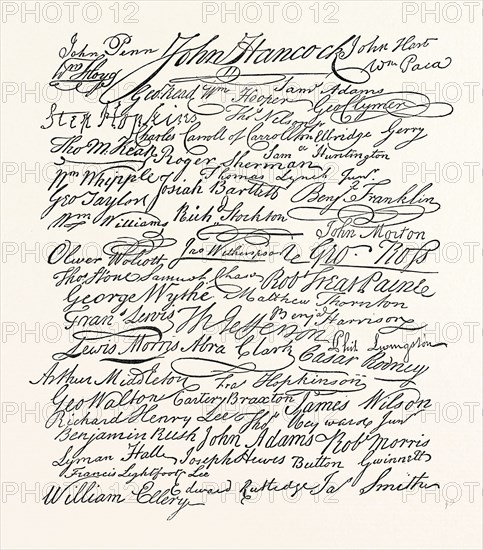 John Penn John Hancock John Hart
Wm Floyd Wm Paca
Geo Read Wm Hooper Saml Adams
Step Hopkins Thos Nelson jr Geo Clymer
Charles Carroll of Carrollton Elbridge Gerry
Tho M:Kean Roger Sherman Saml Huntington
Wm Whipple Thomas Lynch Junr
Geo Taylor Josiah Bartlett Benj Franklin
Wm Williams Richd Stockton
John Morton
Oliver Wolcott Jno Witherspoon Geo. Ross
Thos Stone Samuel Chase Robt Treat Paine
George Wythe Matthew Thornton
Frans Lewis Th Jefferson Benja Harrison
Lewis Morris Abra Clark Phil Livingston
Cæsar Rodney
Arthur Middleton Fras Hopkinson
Geo Walton Carter Braxton James Wilson
Richard Henry Lee Thos Heyward Junr
Benjamin Rush John Adams Robt Morris
Lyman Hall Joseph Hewes Button Gwinnett
Francis Lightfoot Lee
William Ellery Edward Rutledge Ja Smith
PHOTO12